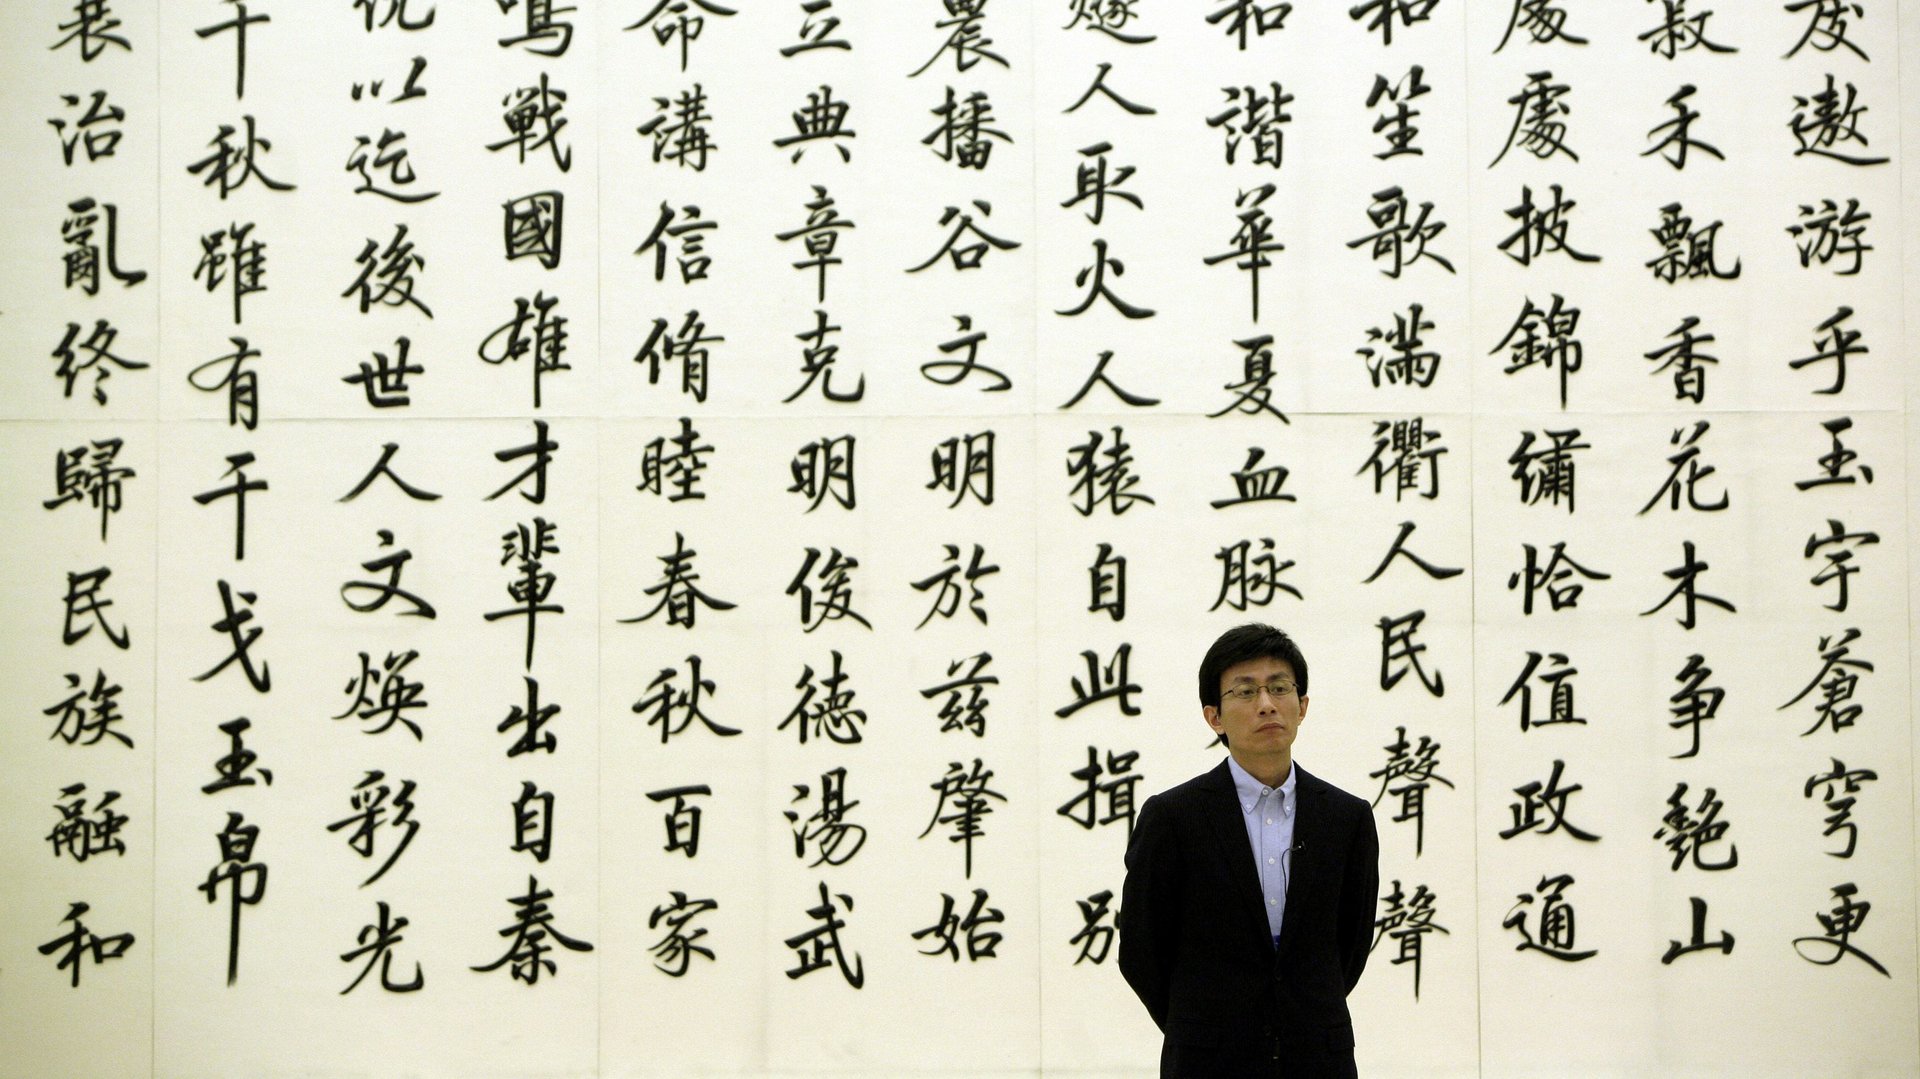 遨游乎玉宇蒼穹更
菽禾飄香花木争艷山
處處披錦繡恰值政通
和笙歌滿衢人民聲聲
和諧華夏血脉
燧人取火人猿自此揖别
農播谷文明於兹肇始
立典章克明俊德湯武
命講信脩睦春秋百家
鳴戰國雄才輩出自秦
以迄後世人文焕彩光
千秋雖有干戈玉帛
衰治亂終歸民族融和